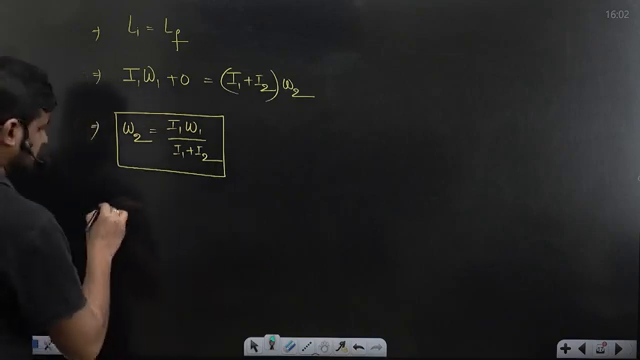 16:02
⇒ Li = Lf
⇒ I₁ω₁ + 0 = (I₁+I₂)ω₂
⇒ ω₂ = I₁ω₁ / I₁+I₂